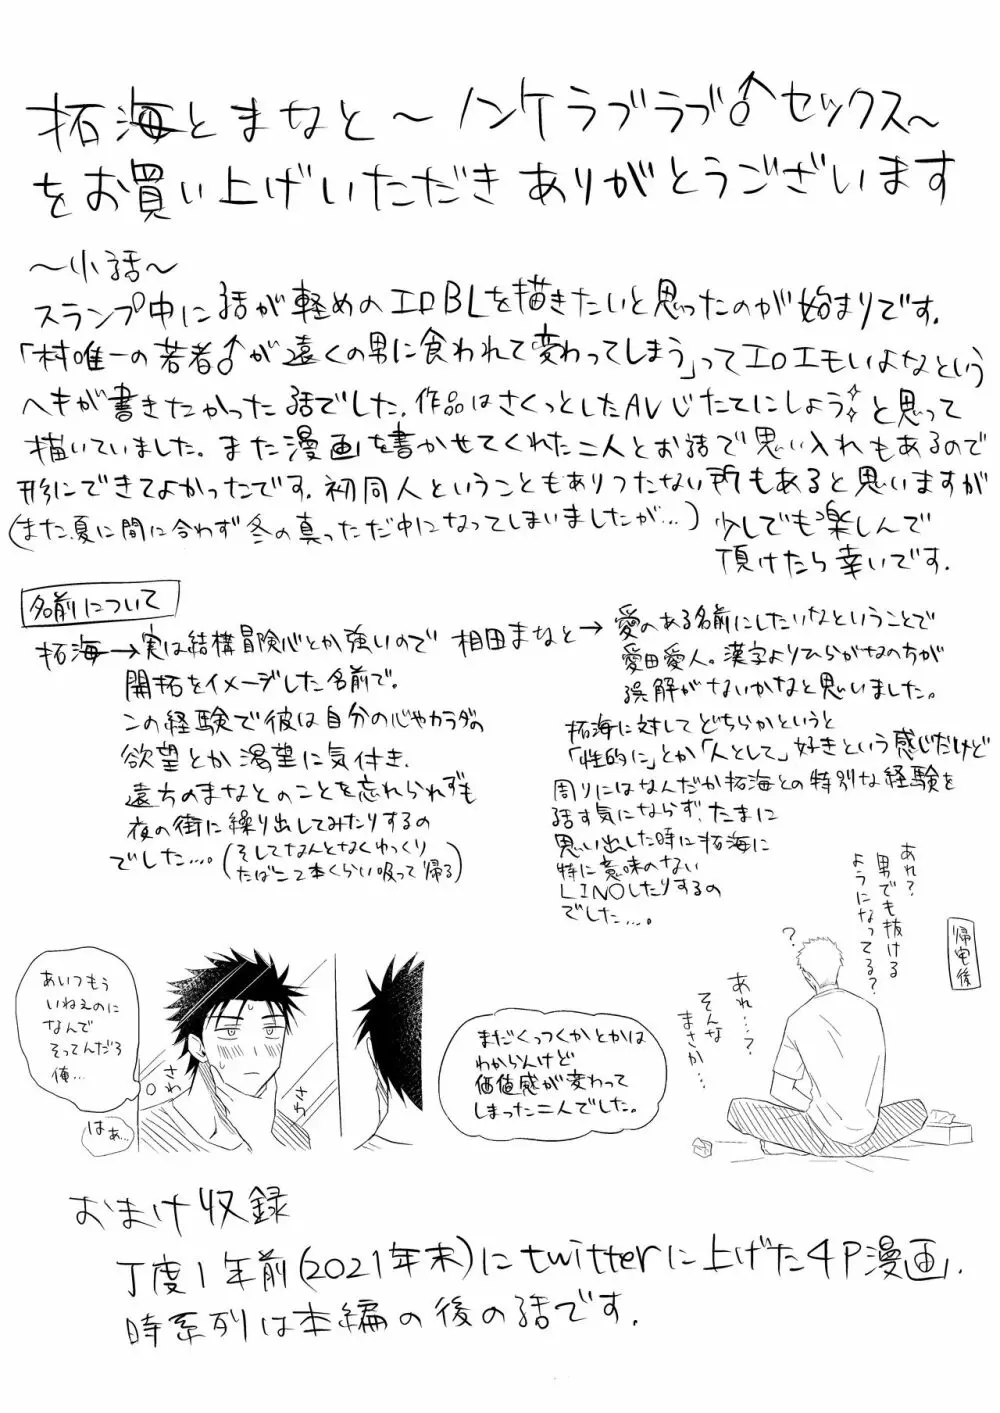 拓海とまなと～ノンケラブラブ♂セックス～
をお買い上げいただきありがとうございます
～小話～
スランプ中に話が軽めのエロBLを描きたいと思ったのが始まりです.
「村唯一の若者♂が遠くの男に食われて変わってしまう」ってエロエモいよなという
ヘキが書きたかった話でした.作品はさくっとしたAVじたてにしよう✧と思って
描いていました。また漫画を書かせてくれた二人とお話で思い入れもあるので
形にできてよかったです.初同人ということもありつたない所もあると思いますが
(また夏に間に合わず冬の真っただ中になってしまいましたが…)少しでも楽しんで
頂けたら幸いです.
名前について
拓海→実は結構冒険心とか強いので
開拓をイメージした名前で。
この経験で彼は自分の心やカラダの
欲望とか渇望に気付き、
遠方のまなとのことを忘れられずも
夜の街に繰り出してみたりするの
でした…。(そしてなんとなくゆっくり
たばこ2本くらい吸って帰る)
相田まなと→愛のある名前にしたいなということで
愛田愛人。漢字よりひらがなの方が
誤解がないかなと思いました。
拓海に対してどちらかというと
「性的に」とか「人として」好きという感じだけど
周りにはなんだか拓海との特別な経験を
話す気にならず、たまに
思い出した時に拓海に
特に意味のない
LINOしたりするの
でした…。
帰宅後
あれ?
男でも抜ける
ようになってる?
?
あれ…?
そんな
まさか…
あいつもう
いねぇのに
なんで
そってんだろ
俺…
はぁ…
さわ
さわ
まだくっつくかとかは
わからんけど
価値感が変わって
しまった二人でした。
おまけ収録
丁度1年前(2021年末)にtwitterに上げた4P漫画.
時系列は本編の後の話です.